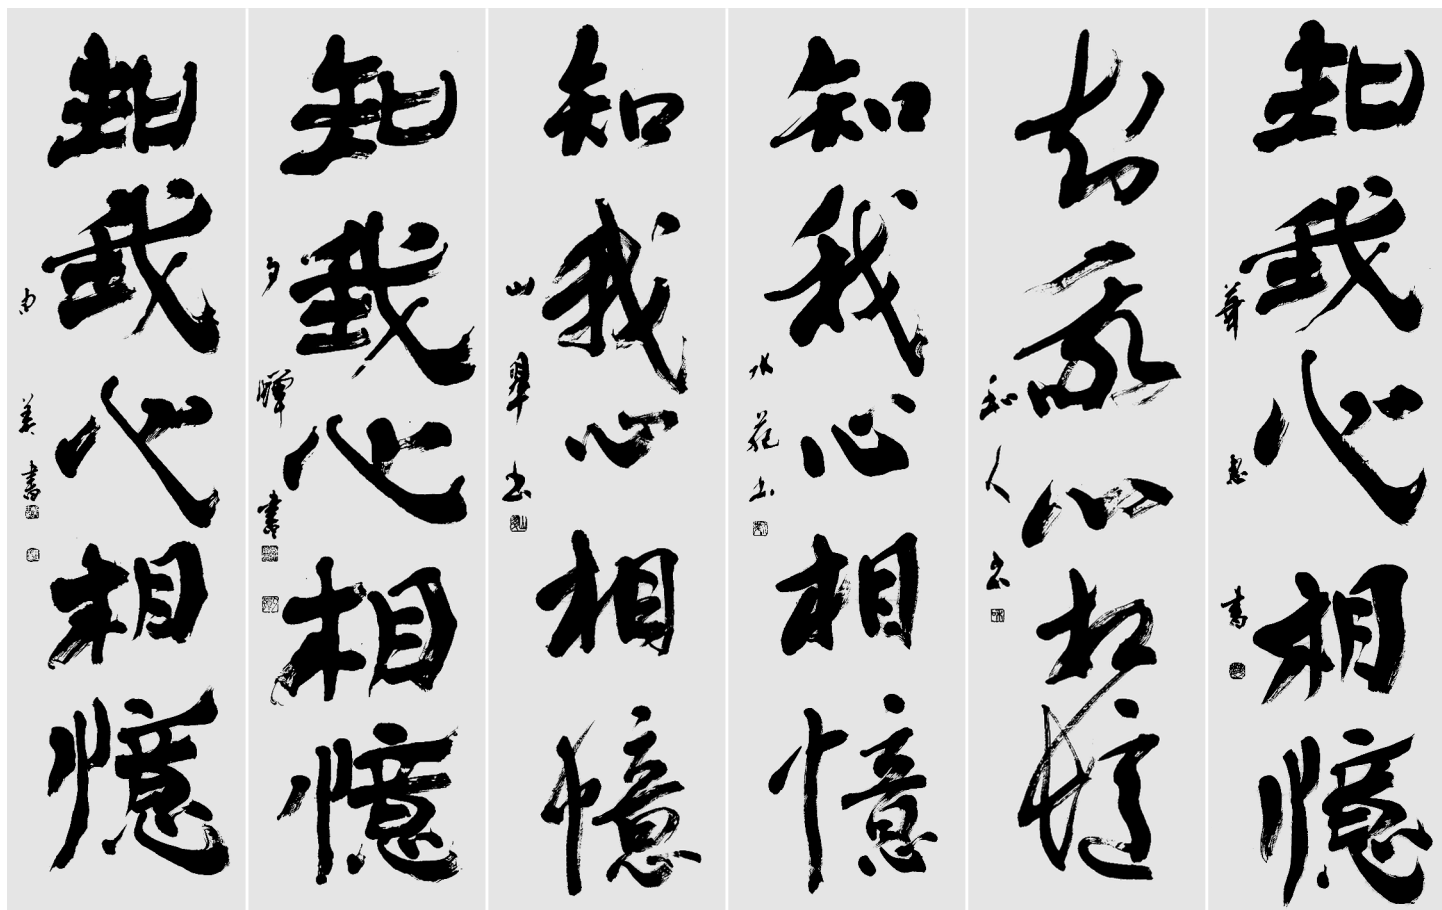 知我心相憶
華 書
知我心相憶
和人书
知我心相憶
水花书
知我心相憶
山翠书
知我心相憶
夕暉書
知我心相憶
由美書